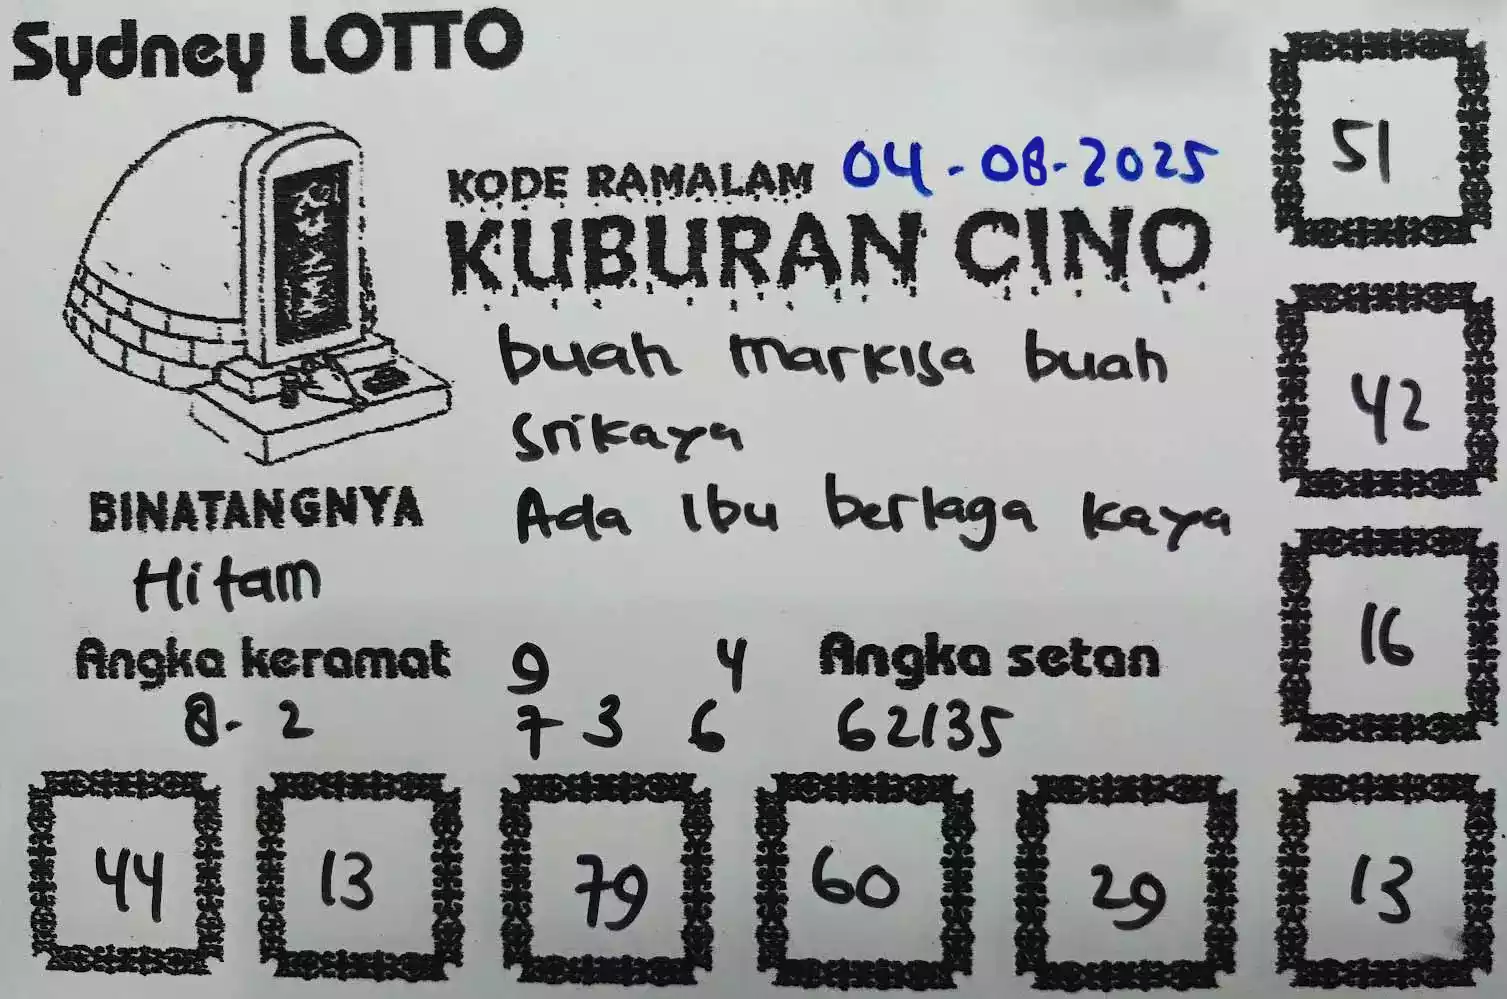 Sydney LOTTO
KODE RAMALAM 04-08-2025
KUBURAN CINO
buah markisa buah
srikaya
Ada Ibu berlaga kaya
BINATANGNYA
Hitam
Angka keramat
8-2
9 4
7 3 6
Angka setan
62135
51
42
16
44 13 79 60 29 13